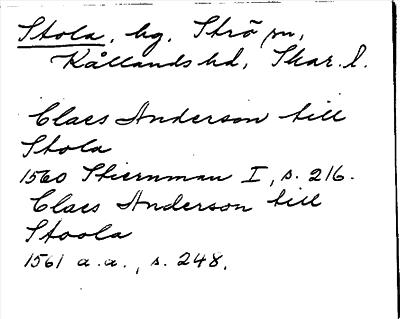 Stola, hg, Strö sn,
Kållands hd, Skar. l.
Claes Anderson till
Stola
1560 Stiernman I, s. 216.
Claes Anderson till
Stoola
1561 a.a., s. 248.